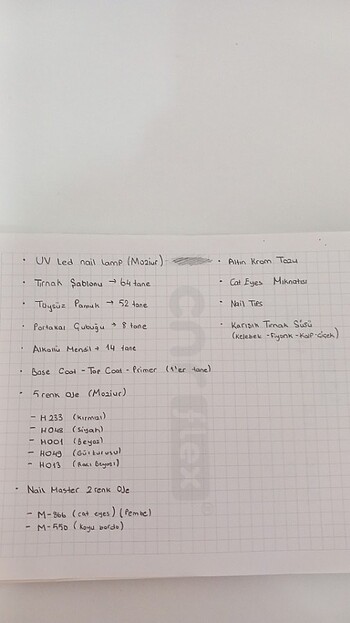 • UV Led nail lamp (Moziur)
• Tırnak Şablonu → 64 tane
• Tüysüz Pamuk → 52 tane
• Portakal Çubuğu → 8 tane
• Alkollü Mendil → 14 tane
• Base Coat - Top Coat - Primer (1'er tane)
• 5 renk oje (Moziur)
- H233 (Kırmızı)
- H048 (Siyah)
- H001 (Beyaz)
- H049 (Gül kurusu)
- H013
• Nail Master 2 renk oje
- M-866 (cat eyes) (Pembe)
- M-550 (koyu bordo)
• Altın Krom Tozu
• Cat Eyes Mıknatısı
• Nail Tips
• Karışık Tırnak Süsü
(Kelebek - Fiyonk - Kalp - Çiçek)
flex